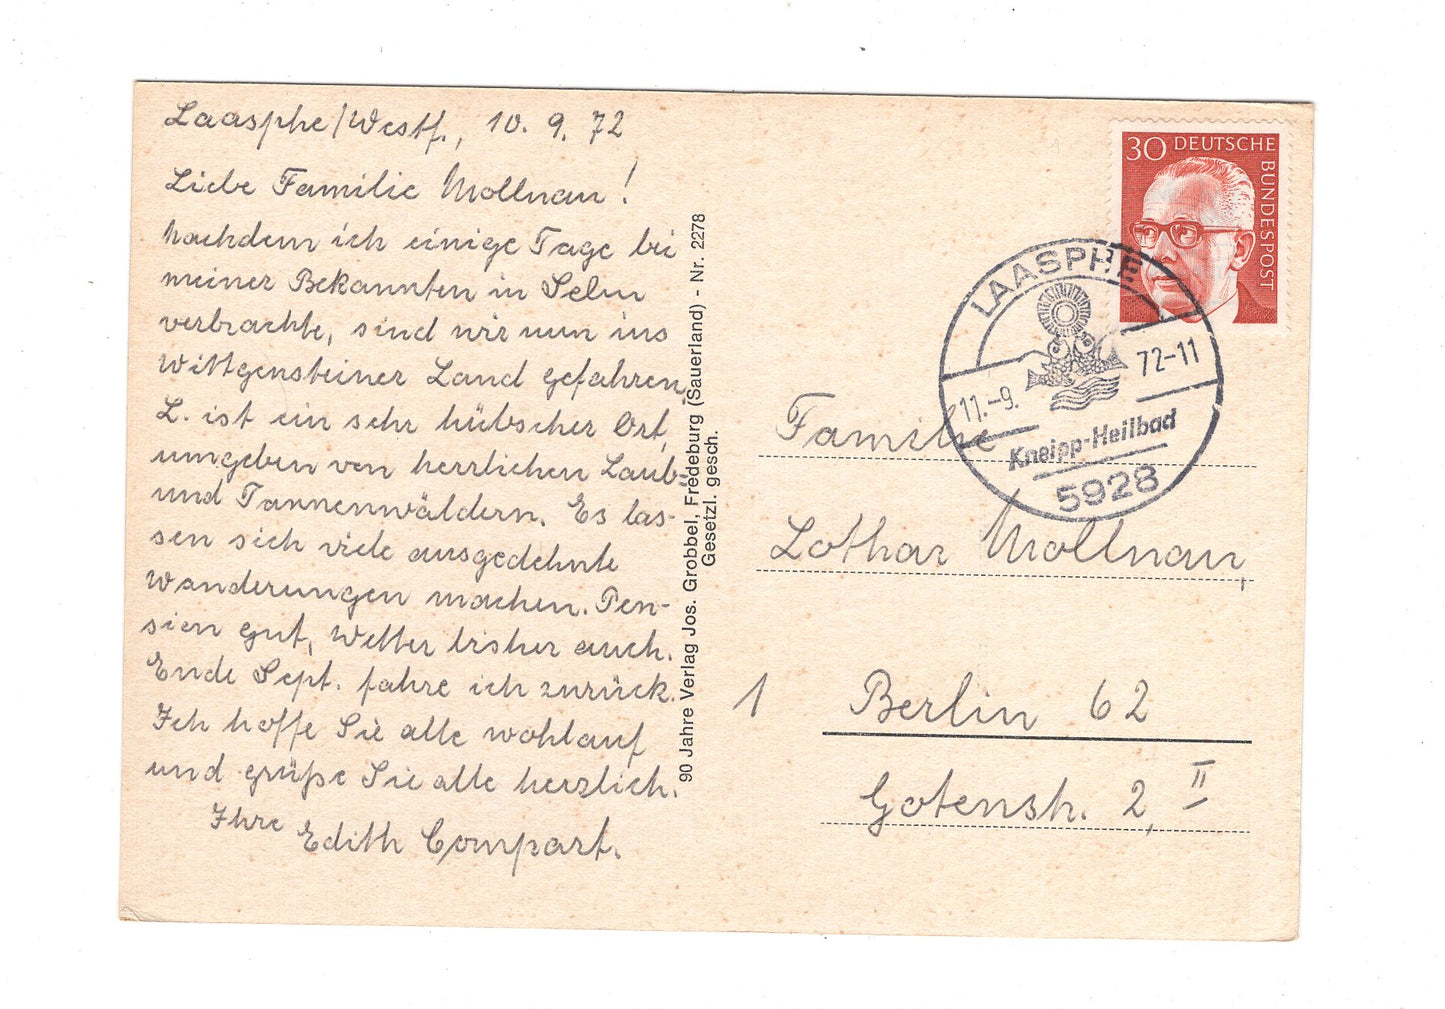 Laasphe/Westf., 10. 9. 72
Liebe Familie Mollnau!
Nachdem ich einige Tage bei
meiner Bekannten in Selm
verbrachte, sind wir nun ins
Wittgensteiner Land gefahren.
L. ist ein sehr hübscher Ort,
umgeben von herrlichen Laub-
und Tannenwäldern. Es las-
sen sich viele ausgedehnte
Wanderungen machen. Pen-
sion gut, Wetter bisher auch.
Ende Sept. fahre ich zurück.
Ich hoffe Sie alle wohlauf
und grüße Sie alle herzlich.
Ihre Edith Compart.
90 Jahre Verlag Jos. Grobbel, Fredeburg (Sauerland) - Nr. 2278
Gesetzl. gesch.
30 DEUTSCHE
BUNDESPOST
LAASPHE
11.-9. 72-11
Kneipp-Heilbad
5928
Familie
Lothar Mollnau,
1 Berlin 62
Gotenstr. 2, II